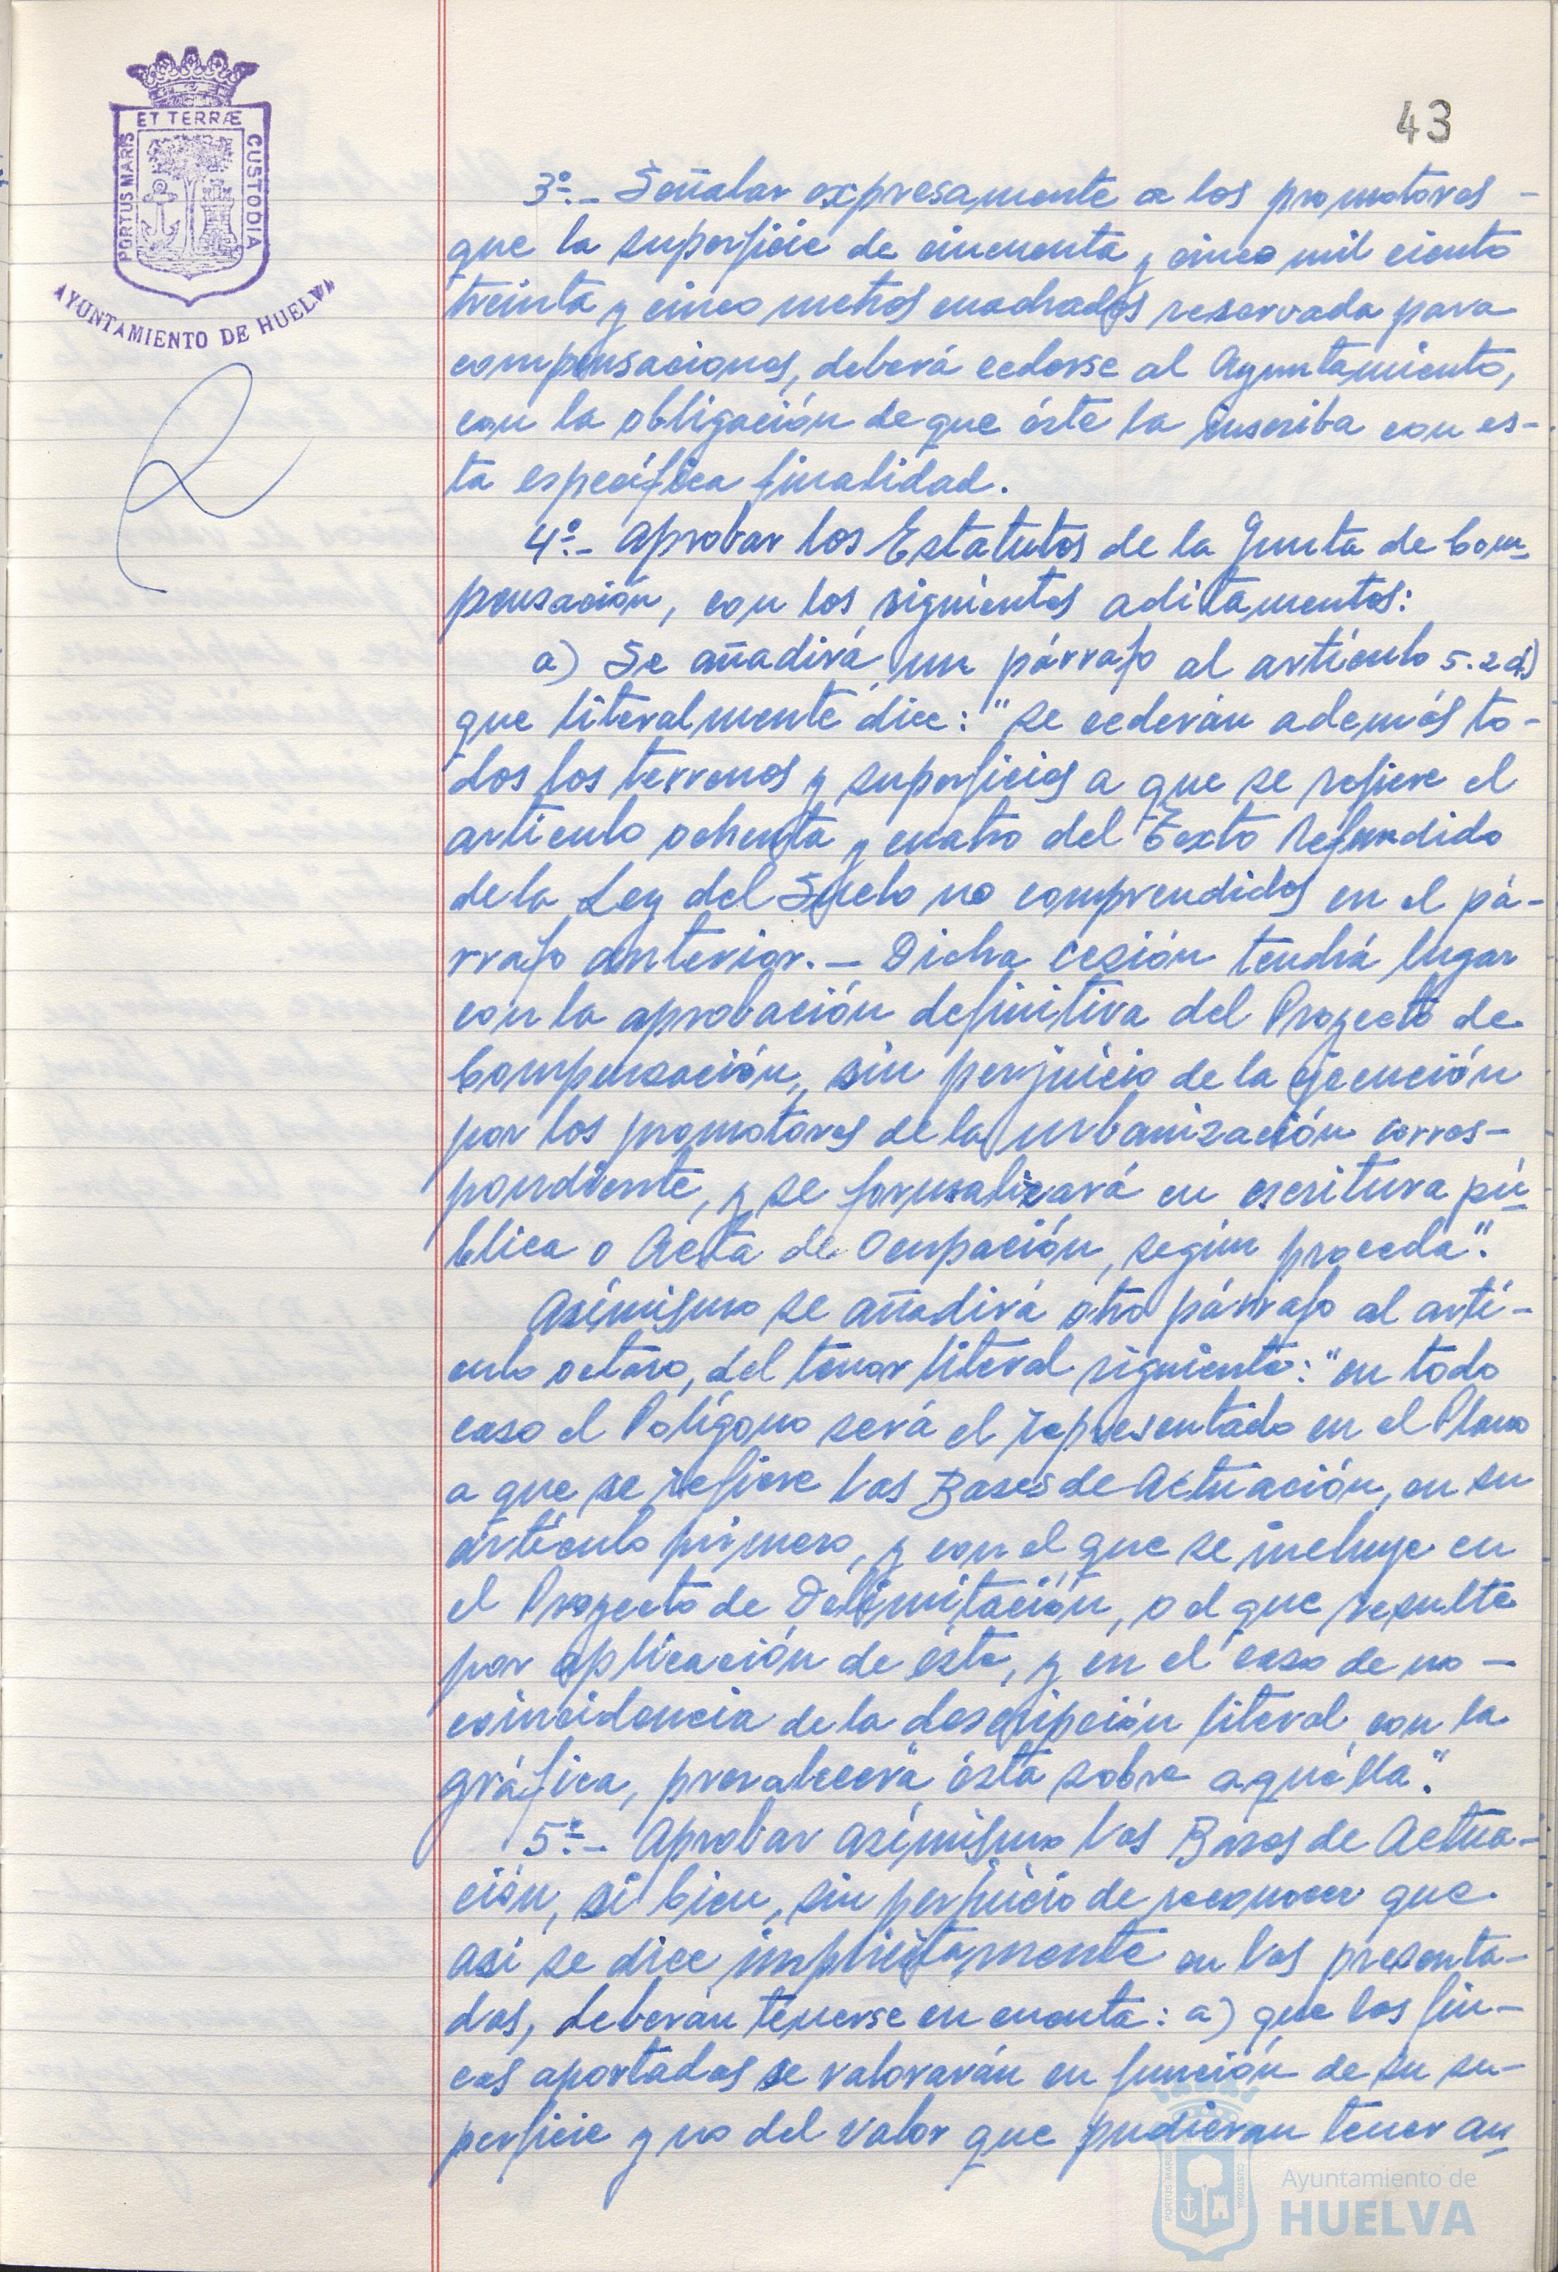 ET TERRÆ
PORTUS MARIS
CUSTODIA
AYUNTAMIENTO DE HUELVA
43
3º.- Señalar expresamente a los promotores -
que la superficie de cincuenta y cinco mil ciento
treinta y cinco metros cuadrados reservada para
compensaciones, deberá cederse al Ayuntamiento,
con la obligación de que éste la inscriba con es-
ta específica finalidad.
4º.- Aprobar los Estatutos de la Junta de Com-
pensación, con los siguientes aditamentos:
a) Se añadirá un párrafo al artículo 5.2 d)
que literalmente dice: "se cederán además to-
dos los terrenos y superficies a que se refiere el
artículo ochenta y cuatro del Texto Refundido
de la Ley del Suelo no comprendidos en el pá-
rrafo anterior.- Dicha cesión tendrá lugar
con la aprobación definitiva del Proyecto de
Compensación, sin perjuicio de la ejecución
por los promotores de la urbanización corres-
pondiente, y se formalizará en escritura pú-
blica o Acta de Ocupación, según proceda".
Asímismo se añadirá otro párrafo al artí-
culo octavo, del tenor literal siguiente: "en todo
caso el Polígono será el representado en el Plano
a que se refiere las Bases de Actuación, en su
artículo primero, y con el que se incluye en
el Proyecto de Delimitación, o el que resulte
por aplicación de éste, y en el caso de no -
coincidencia de la descripción literal con la
gráfica, prevalecerá ésta sobre aquélla".
5º.- Aprobar asímismo las Bases de Actua-
ción, si bien, sin perjuicio de reconocer que
así se dice implícitamente en las presenta-
das, deberán tenerse en cuenta: a) que las fin-
cas aportadas se valorarán en función de su su-
perficie y no del valor que pudieran tener an
PORTUS MARIS
CUSTODIA
Ayuntamiento de
HUELVA